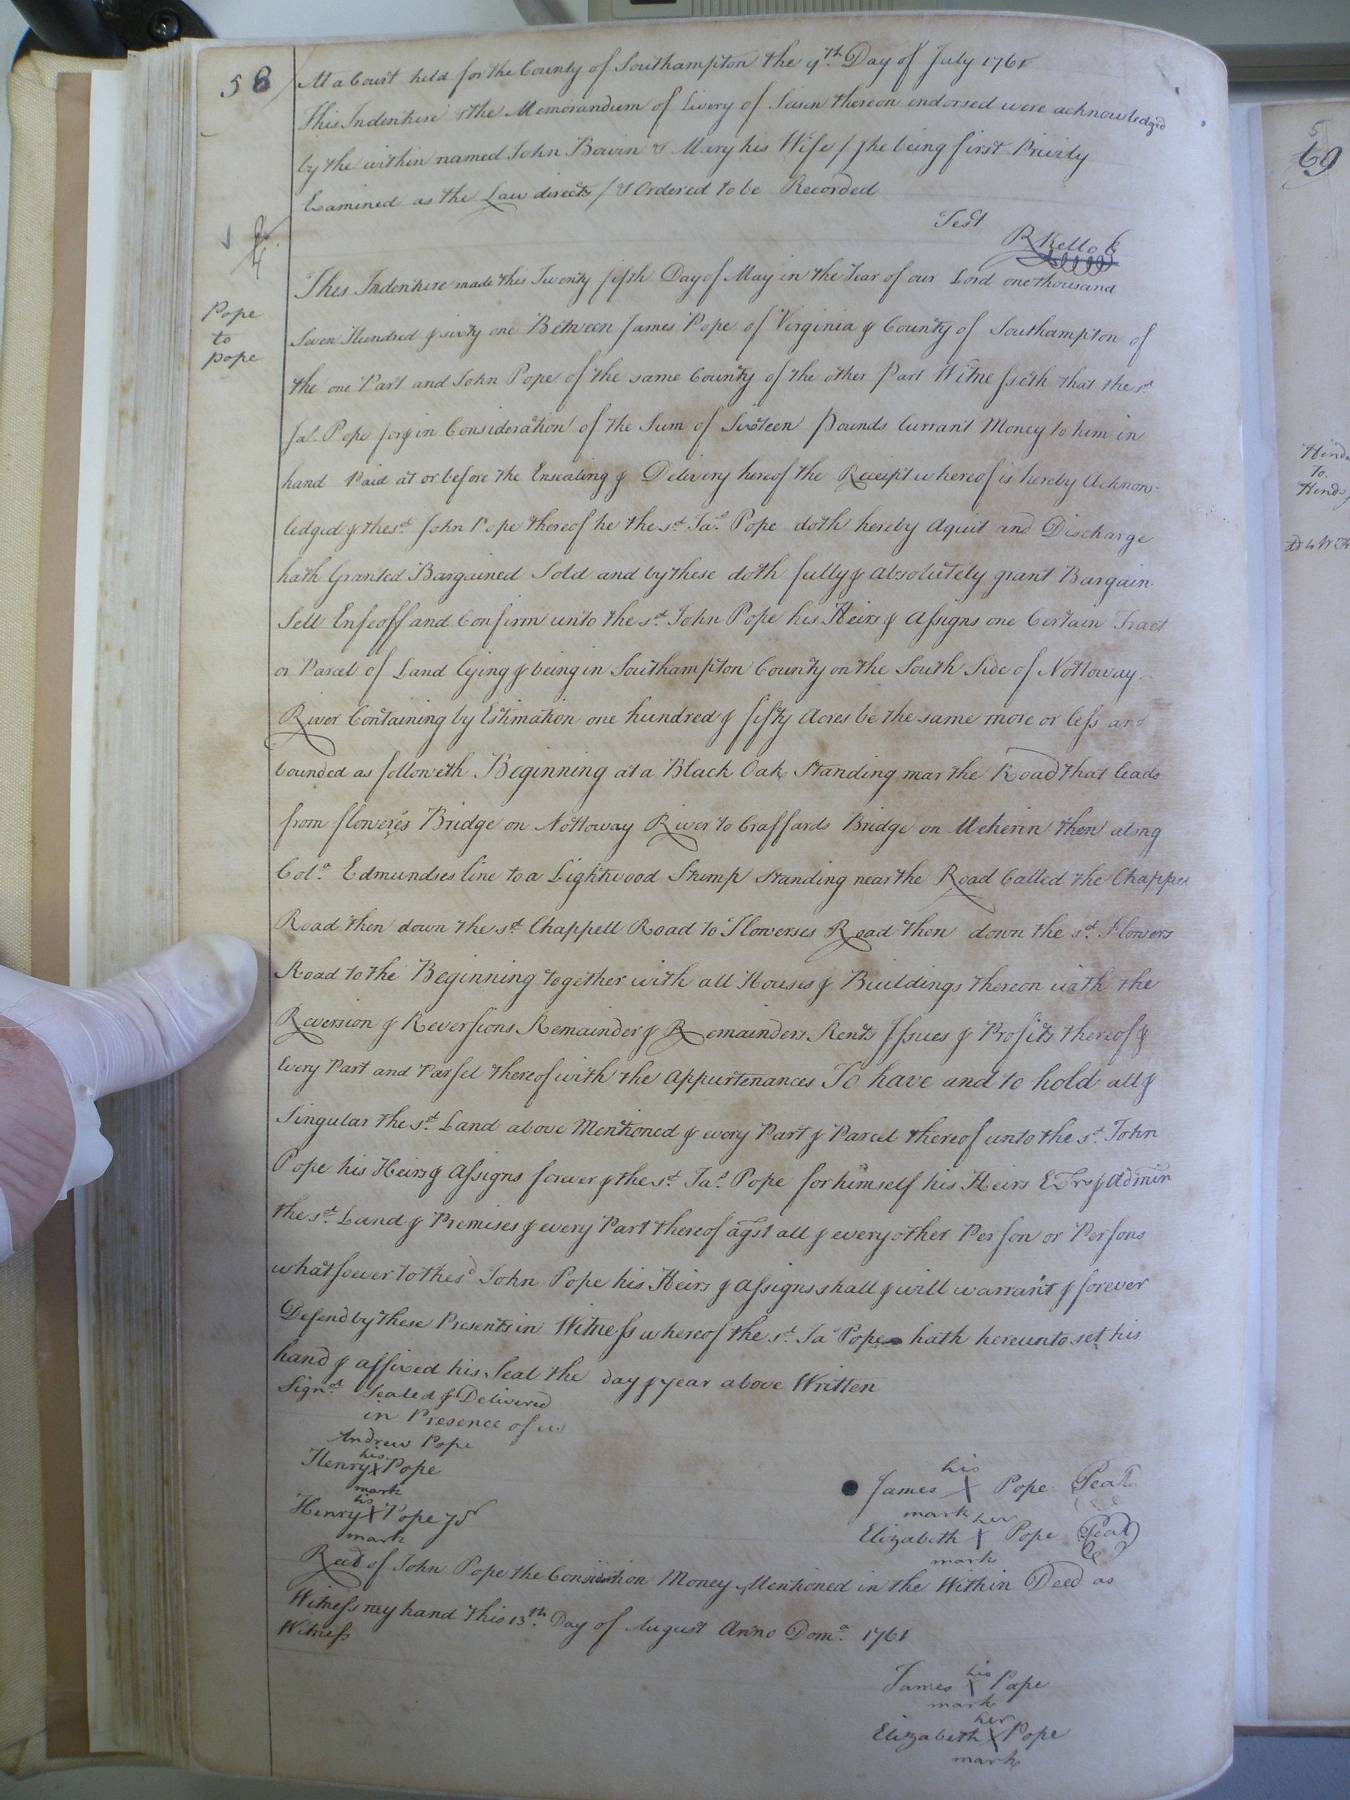 58
At a Court held for the County of Southampton the 9th Day of July 1761
This Indenture & the Memorandum of Livery of Seisin thereon endorsed were acknowledged
by the within named John Bowin & Mary his Wife / she being first Privily
Examined as the Law directs / & Ordered to be Recorded
Test
R Kello
Pope
to
pope
This Indenture made this Twenty fifth Day of May in the Year of our Lord one thousand
Seven Hundred & sixty one Between James Pope of Virginia & County of Southampton of
the one Part and John Pope of the same County of the other part Witnesseth that the sd
Jas. Pope for & in Consideration of the Sum of Sixteen pounds Currant Money to him in
hand Paid at or before the Ensealing & Delivery hereof the Receipt whereof is hereby Acknow=
ledged & the sd. John Pope thereof he the sd. Jas. Pope doth hereby Aquit and Discharge
hath Granted Bargained Sold and by these doth fully & absolutely grant Bargain
Sell Enfeoff and Confirm unto the sd. John Pope his Heirs & Assigns one Certain Tract
or Parcel of Land lying & being in Southampton County on the South Side of Nottoway
River Containing by Estimation one hundred & fifty Acres be the same more or less and
bounded as followeth Beginning at a Black Oak Standing near the Road that leads
from flowers's Bridge on Nottoway River to Craffords Bridge on Meherin then along
Colo. Edmundses line to a Lightwood Stump standing near the Road Called the Chappel
Road then down the sd. Chappell Road to Flowerses Road then down the sd. Flowers
Road to the Beginning together with all Houses & Buildings thereon with the
Reversion & Reversions Remainder & Remainders Rents Issues & Profits thereof &
Every Part and Parsel thereof with the Appurtenances To have and to hold all &
Singular the sd. Land above Mentioned & every Part & Parcel thereof unto the sd. John
Pope his Heirs & Assigns forever & the sd. Jas. Pope for himself his Heirs Exrs & Admin
the sd. Land & Premises & every Part thereof agst all & every other Person or Persons
whatsoever to the sd John Pope his Heirs & Assigns shall & will warrant & forever
Defend by these Presents in Witness whereof the sd. Jas Pope hath hereunto set his
hand & affixed his Seal the day & year above Written
Signd. Sealed & Delivered
in Presence of us
Andrew Pope
his
Henry X Pope
mark
his
Henry X Pope Jr
mark
his
James X Pope Seal
mark
her
Elizabeth X Pope Seal
mark
Recd of John Pope the Consideration Money Mentioned in the Within Deed as
Witness my hand this 13th. Day of August Anno Domo. 1761
Witness
his
James X Pope
mark
her
Elizabeth X Pope
mark
59
to